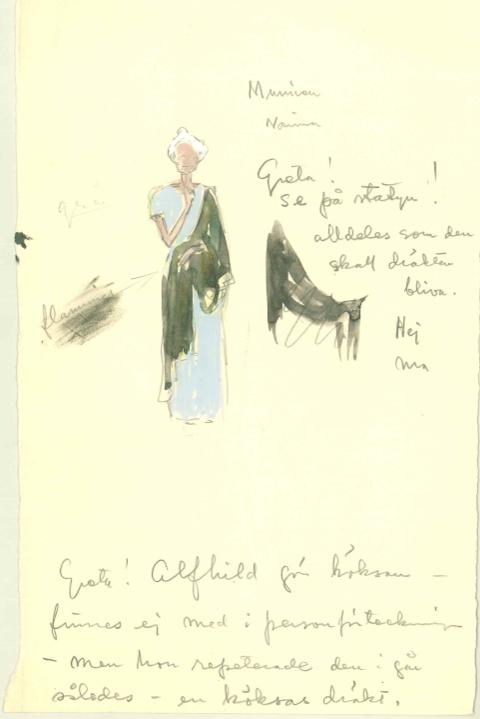 Naima
Greta!
se på statyn!
alldeles som den
skall dräkten
bliva.
Hej
Greta! Alfhild gör köksan –
finnes ej med i personförteckning
– men hon repeterade den i går
således – en köksas dräkt.